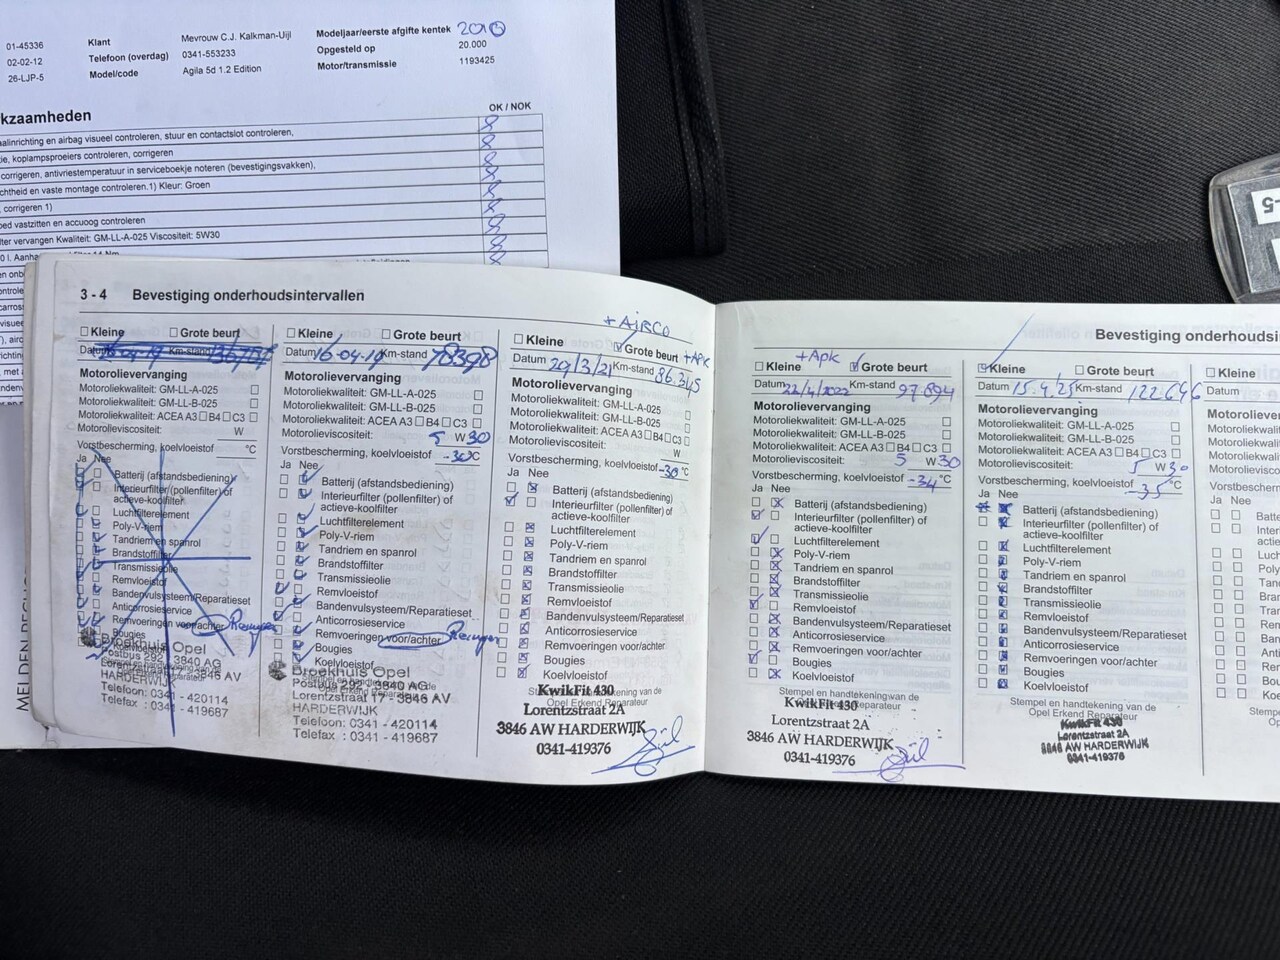 01-45336 Klant Mevrouw C.J. Kalkman-Uijl Modeljaar/eerste afgifte kentek
02-02-12 Telefoon (overdag) 0341-553233 Opgesteld op 20.000
26-LJP-5 Model/code Agila 5d 1.2 Edition Motor/transmissie 1193425
kzaamheden OK / NOK
aalinrichting en airbag visueel controleren, stuur en contactslot controleren,
ie, koplampsproeiers controleren, corrigeren
corrigeren, antivriestemperatuur in serviceboekje noteren (bevestigingsvakken),
chtheid en vaste montage controleren.1) Kleur: Groen
, corrigeren 1)
oed vastzitten en accuoog controleren
lter vervangen Kwaliteit: GM-LL-A-025 Viscositeit: 5W30
3 - 4 Bevestiging onderhoudsintervallen
Kleine Grote beurt
Datum Km-stand
Motorolievervanging
Motoroliekwaliteit: GM-LL-A-025
Motoroliekwaliteit: GM-LL-B-025
Motoroliekwaliteit: ACEA A3 B4 C3
Motorolieviscositeit: W
Vorstbescherming, koelvloeistof °C
Ja Nee
Batterij (afstandsbediening)
Interieurfilter (pollenfilter) of
actieve-koolfilter
Luchtfilterelement
Poly-V-riem
Tandriem en spanrol
Brandstoffilter
Transmissieolie
Remvloeistof
Bandenvulsysteem/Reparatieset
Anticorrosieservice
Remvoeringen voor/achter
Bougies
Koelvloeistof
Broekhuis Opel
Postbus 292 - 3840 AG
Lorentzstraat 17 - 3846 AV
HARDERWIJK
Telefoon: 0341 - 420114
Telefax : 0341 - 419687
Kleine Grote beurt
Datum 16-04-19 Km-stand 78398
Motorolievervanging
Motoroliekwaliteit: GM-LL-A-025
Motoroliekwaliteit: GM-LL-B-025
Motoroliekwaliteit: ACEA A3 B4 C3
Motorolieviscositeit: 5 W 30
Vorstbescherming, koelvloeistof °C
Ja Nee
Batterij (afstandsbediening)
Interieurfilter (pollenfilter) of
actieve-koolfilter
Luchtfilterelement
Poly-V-riem
Tandriem en spanrol
Brandstoffilter
Transmissieolie
Remvloeistof
Bandenvulsysteem/Reparatieset
Anticorrosieservice
Remvoeringen voor/achter
Bougies
Koelvloeistof
Broekhuis Opel
Postbus 292 - 3840 AG
Lorentzstraat 17 - 3846 AV
HARDERWIJK
Telefoon: 0341 - 420114
Telefax : 0341 - 419687
+ AIRCO
Kleine Grote beurt + APK
Datum 29/3/21 Km-stand 86.345
Motorolievervanging
Motoroliekwaliteit: GM-LL-A-025
Motoroliekwaliteit: GM-LL-B-025
Motoroliekwaliteit: ACEA A3 B4 C3
Motorolieviscositeit: W
Vorstbescherming, koelvloeistof -30 °C
Ja Nee
Batterij (afstandsbediening)
Interieurfilter (pollenfilter) of
actieve-koolfilter
Luchtfilterelement
Poly-V-riem
Tandriem en spanrol
Brandstoffilter
Transmissieolie
Remvloeistof
Bandenvulsysteem/Reparatieset
Anticorrosieservice
Remvoeringen voor/achter
Bougies
Koelvloeistof
Stempel en handtekening van de
Opel Erkend Reparateur
KwikFit 430
Lorentzstraat 2A
3846 AW HARDERWIJK
0341-419376
+ Apk
Kleine Grote beurt
Datum 22/4/2022 Km-stand 97.894
Motorolievervanging
Motoroliekwaliteit: GM-LL-A-025
Motoroliekwaliteit: GM-LL-B-025
Motoroliekwaliteit: ACEA A3 B4 C3
Motorolieviscositeit: 5 W 30
Vorstbescherming, koelvloeistof -34 °C
Ja Nee
Batterij (afstandsbediening)
Interieurfilter (pollenfilter) of
actieve-koolfilter
Luchtfilterelement
Poly-V-riem
Tandriem en spanrol
Brandstoffilter
Transmissieolie
Remvloeistof
Bandenvulsysteem/Reparatieset
Anticorrosieservice
Remvoeringen voor/achter
Bougies
Koelvloeistof
Stempel en handtekening van de
Opel Erkend Reparateur
KwikFit 430
Lorentzstraat 2A
3846 AW HARDERWIJK
0341-419376
Bevestiging onderhoudsi
Kleine Grote beurt
Datum 15.4.25 Km-stand 122.646
Motorolievervanging
Motoroliekwaliteit: GM-LL-A-025
Motoroliekwaliteit: GM-LL-B-025
Motoroliekwaliteit: ACEA A3 B4 C3
Motorolieviscositeit: 5 W 30
Vorstbescherming, koelvloeistof -35 °C
Ja Nee
Batterij (afstandsbediening)
Interieurfilter (pollenfilter) of
actieve-koolfilter
Luchtfilterelement
Poly-V-riem
Tandriem en spanrol
Brandstoffilter
Transmissieolie
Remvloeistof
Bandenvulsysteem/Reparatieset
Anticorrosieservice
Remvoeringen voor/achter
Bougies
Koelvloeistof
Stempel en handtekening van de
Opel Erkend Reparateur
KwikFit 430
Lorentzstraat 2A
3846 AW HARDERWIJK
0341-419376
Kleine
Datum
Ja Nee